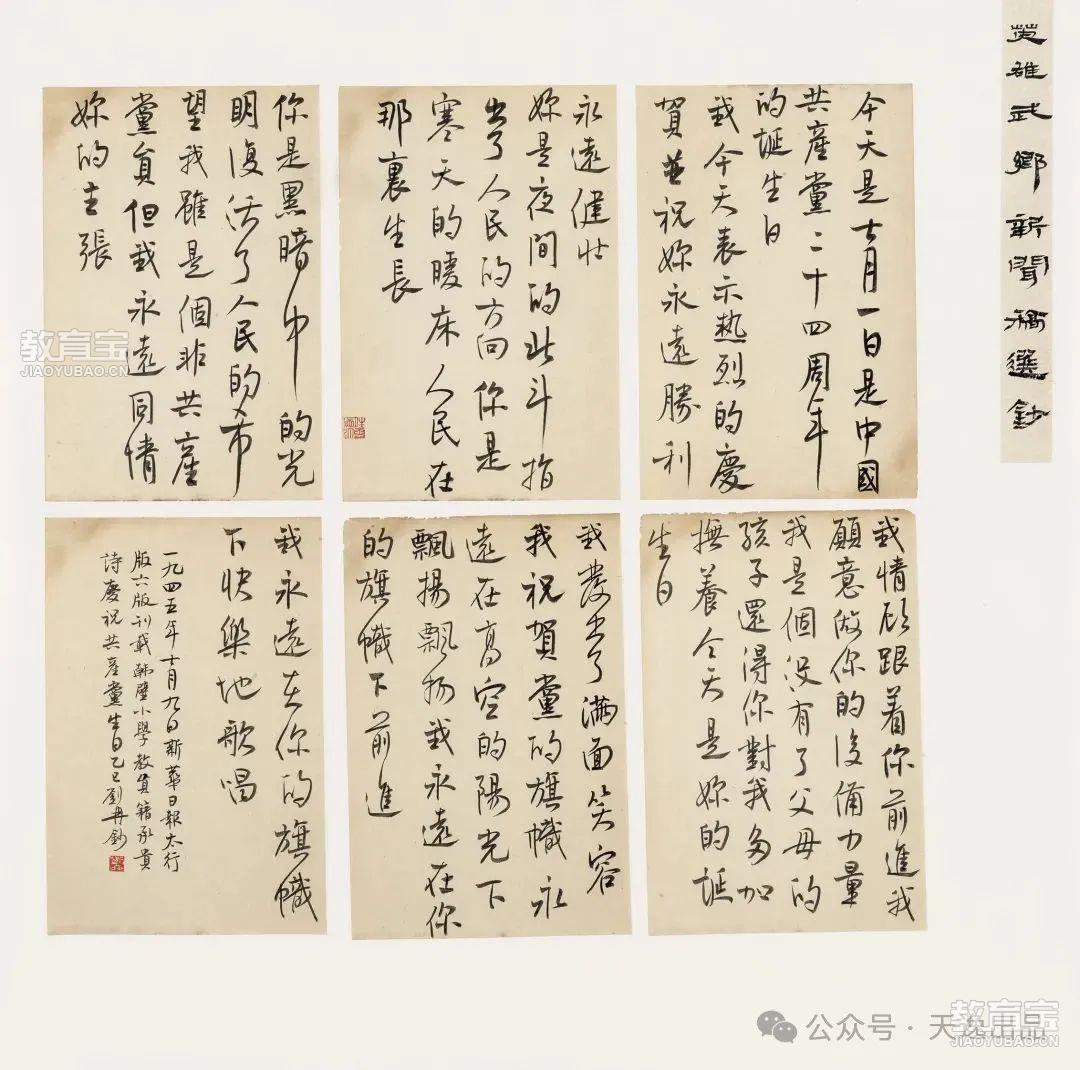 英雄武鄉新聞稿選鈔
今天是七月一日是中國
共產黨二十四周年
的誕生日
我今天表示热烈的慶
賀並祝妳永遠勝利
永遠健壯
妳是夜間的北斗指
出了人民的方向你是
寒天的暖床人民在
那裏生長
你是黑暗中的光
明復活了人民的希
望我雖是個非共產
黨員但我永遠同情
妳的主張
我情願跟着你前進我
願意做你的後備力量
我是個没有了父母的
孩子還得你對我多加
撫養今天是妳的誕
生日
我發出了滿面笑容
我祝賀黨的旗幟永
遠在高空的陽光下
飄揚飄扬我永遠在你
的旗幟下前進
我永遠在你的旗幟
下快樂地歌唱
一九四五年七月九日新華日報太行
版六版刊載韓壁小學教員籍承貴
詩慶祝共產黨生日乙巳劉鈔
教育宝
JIAOYUBAO.CN
公众号·天逸出品
教育宝
JIAOYUBAO.CN